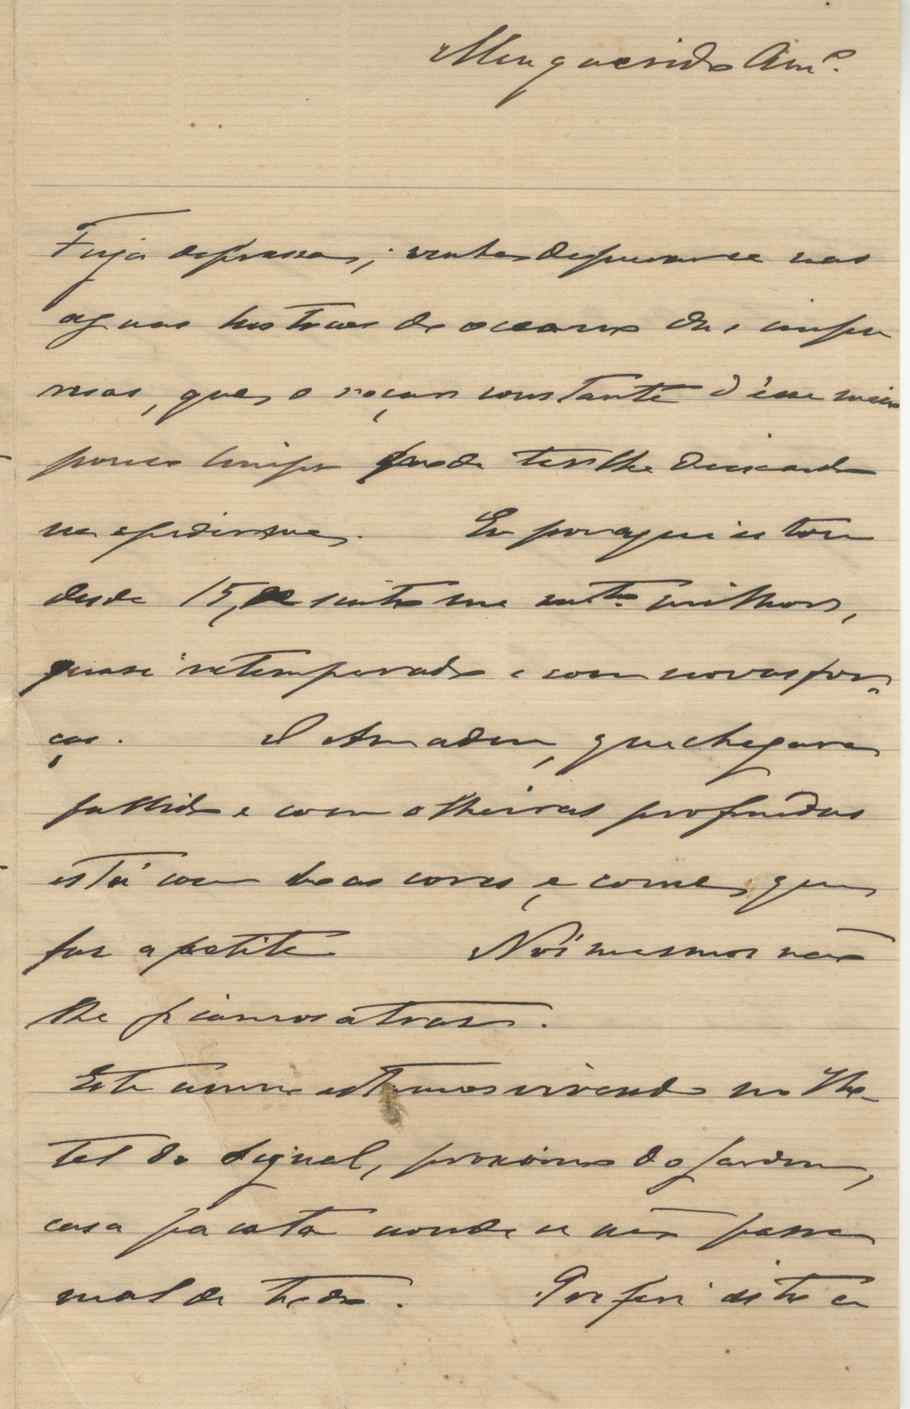 Meu querido Amº.
Fuja depressa; venha depurar-se nas
aguas lustraes do oceano das impu
resas, que o roçar constante d'esse meio
pouco limpo pode ter lhe deixado
na epiderme. Eu por aqui estou
desde 15, e sinto me muto. milhor,
quasi retemperado e com novas for-
ças. O Amadeu, que chegara
pallido e com olheiras profundas
está com boas cores e come, que
faz apetite Nós mesmos não
lhe ficamos atraz.
Este anno estamos vivendo no Ho-
tel do Signal, proximo do jardim,
casa pacata aonde se não passa
mal de todo. Preferi isto a